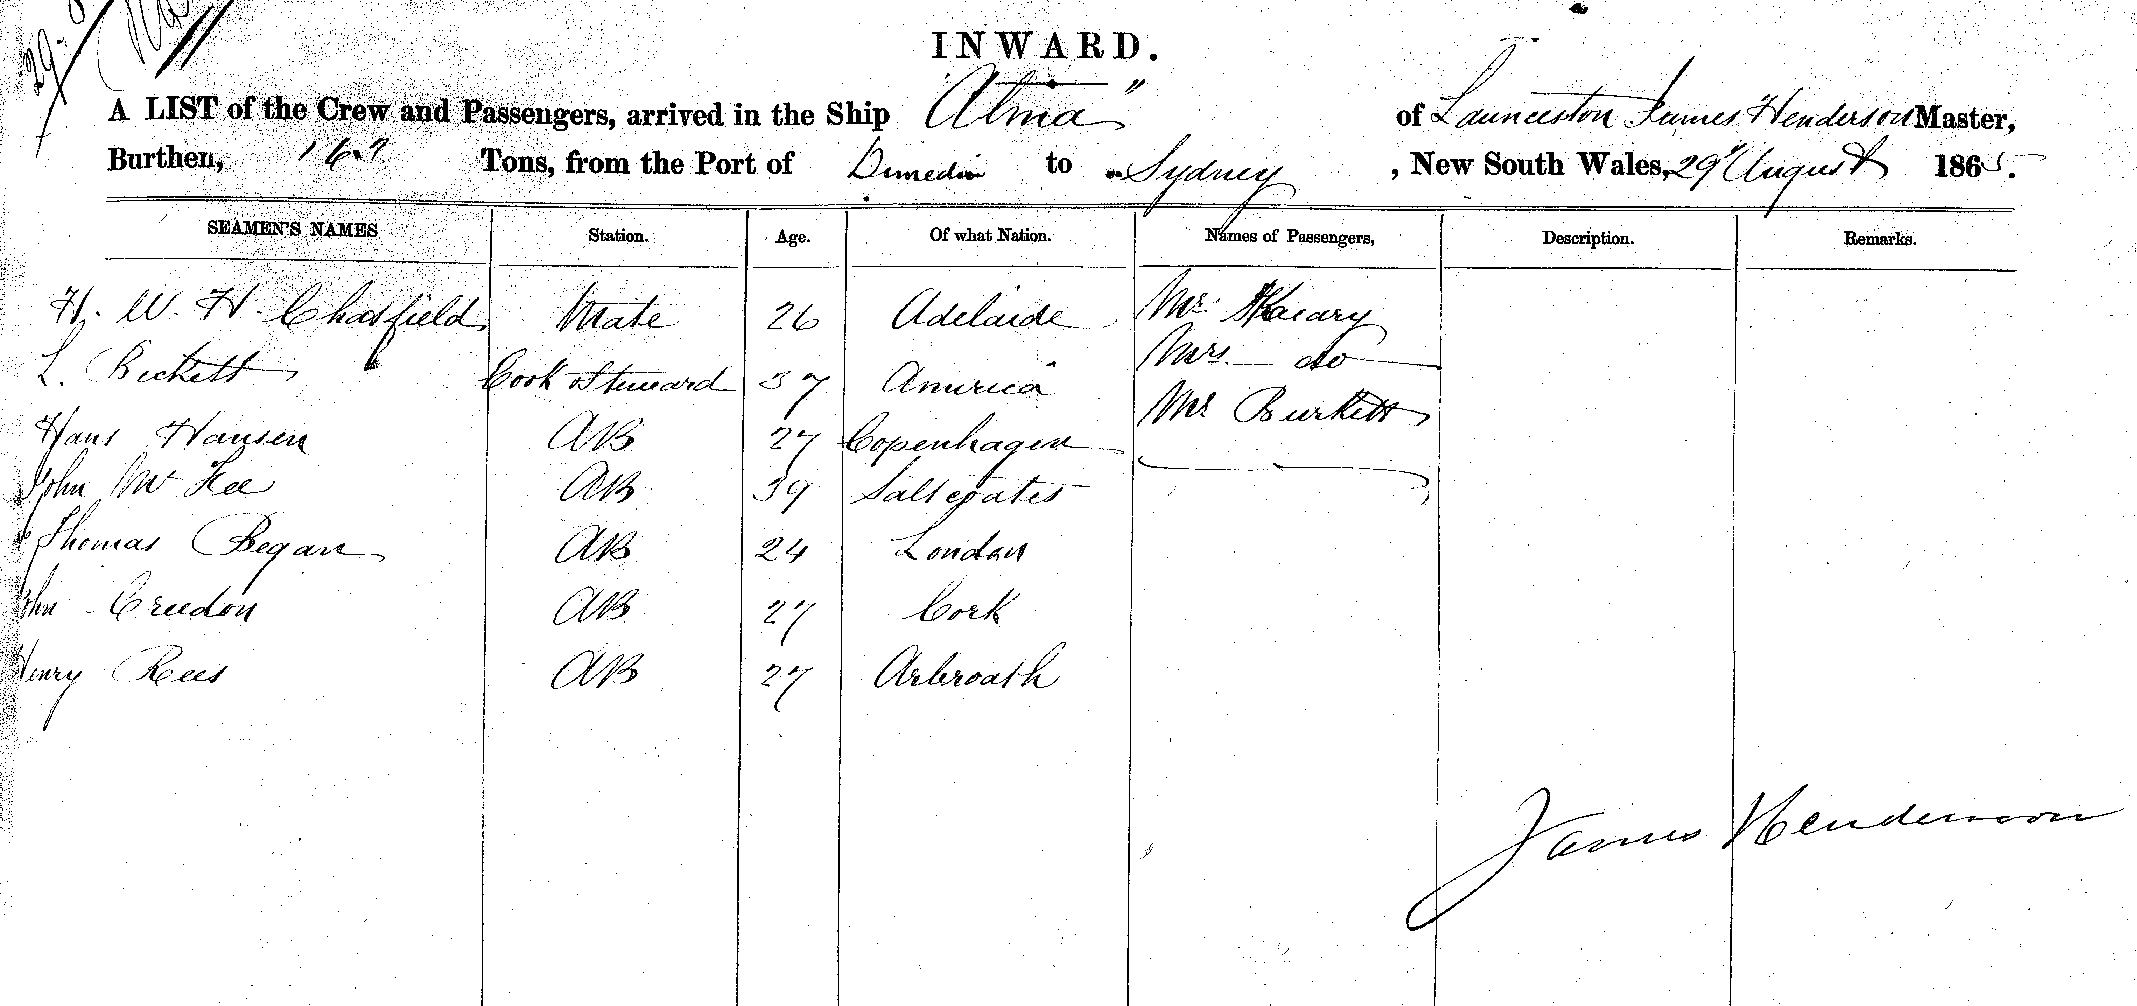 29.
INWARD.
A LIST of the Crew and Passengers, arrived in the Ship "Alma" of Launceston James Henderson Master,
Burthen, 169 Tons, from the Port of Dunedin to Sydney, New South Wales, 29" August 1865.
SEAMEN'S NAMES Station. Age. Of what Nation. Names of Passengers, Description. Remarks.
H. W. H. Chatfield Mate 26 Adelaide Mr
L. Beckett Cook Steward 37 America Mrs do
Hans Hansen AB 27 Copenhagen Mr Burkett
John McKee AB 39 Saltcoates
Thomas Began AB 24 London
John Creedon AB 27 Cork
Henry Rees AB 27 Arbroath
James Henderson